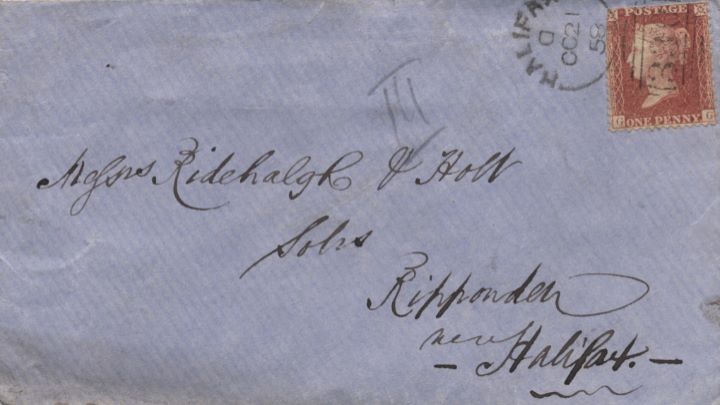 HALIFAX
D
OC 21
58
POSTAGE
ONE PENNY
G G
Messrs Ridehalgh & Holt
Solrs
Ripponden
near
Halifax.